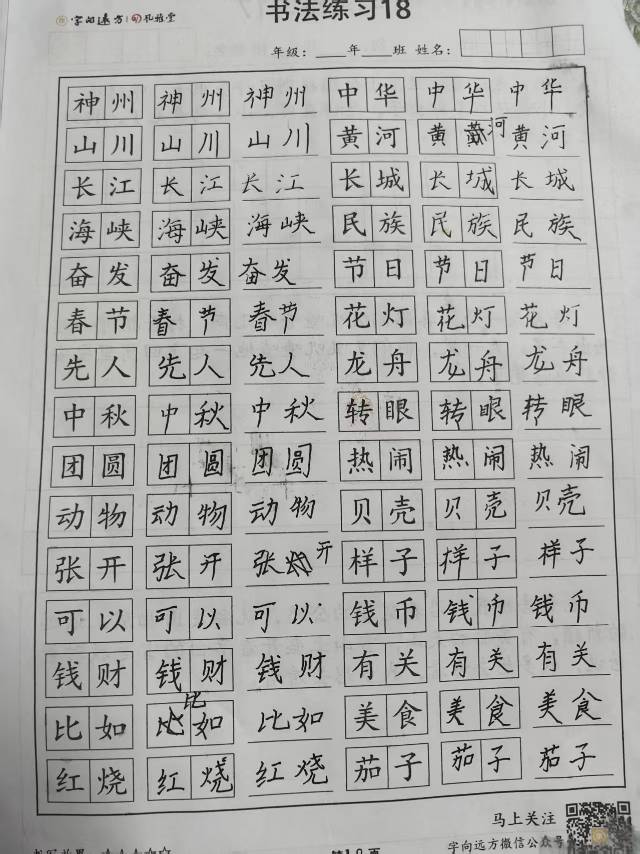 字向远方 礼雅堂
书法练习18
年级：____年____班 姓名：
神州 神州 神州 中华 中华 中华
山川 山川 山川 黄河 黄河 黄河
长江 长江 长江 长城 长城 长城
海峡 海峡 海峡 民族 民族 民族
奋发 奋发 奋发 节日 节日 节日
春节 春节 春节 花灯 花灯 花灯
先人 先人 先人 龙舟 龙舟 龙舟
中秋 中秋 中秋 转眼 转眼 转眼
团圆 团圆 团圆 热闹 热闹 热闹
动物 动物 动物 贝壳 贝壳 贝壳
张开 张开 张开 样子 样子 样子
可以 可以 可以 钱币 钱币 钱币
钱财 钱财 钱财 有关 有关 有关
比如 比如 比如 美食 美食 美食
红烧 红烧 红烧 茄子 茄子 茄子
马上关注
字向远方微信公众号